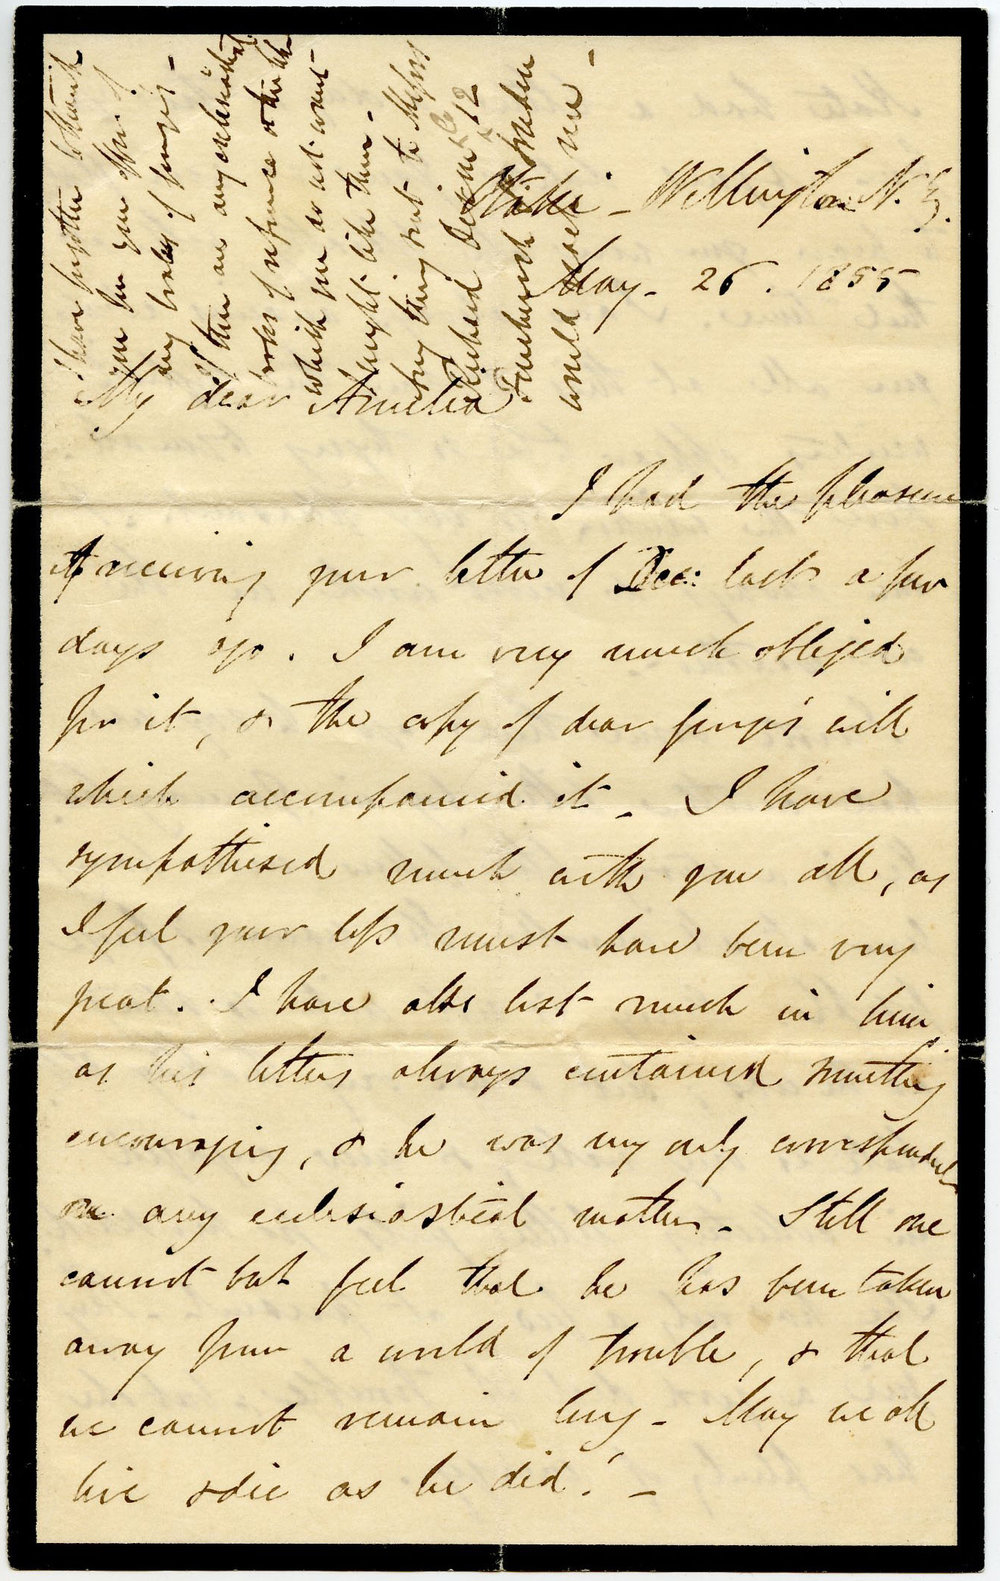 I have further to thank
you for your offer of
any books of George's -
If there are any ecclesiastical
books of reference or the like
which you do not want
I might like them -
sent to Messrs
Richard 12
Fenchurch
would send
Otaki - Wellington N.Z.
May - 26. 1855
My dear Amelia
I had the pleasure
of receiving your letter of Dec: last a few
days ago. I am very much obliged
for it, & the copy of dear George's will
which accompanied it - I have
sympathised much with you all, as
I feel your loss must have been very
great. I have also lost much in him
as his letters always contained something
encouraging, & he was my only correspondent
on any ecclesiastical matters - Still one
cannot but feel that he has been taken
away from a world of trouble, & that
we cannot remain long - May we all
live & die as he did! -